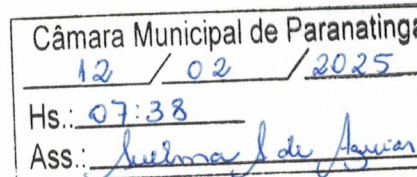 Câmara Municipal de Paranatinga
12 / 02 / 2025
Hs.: 07:38
Ass.: Suelma S de Aguiar